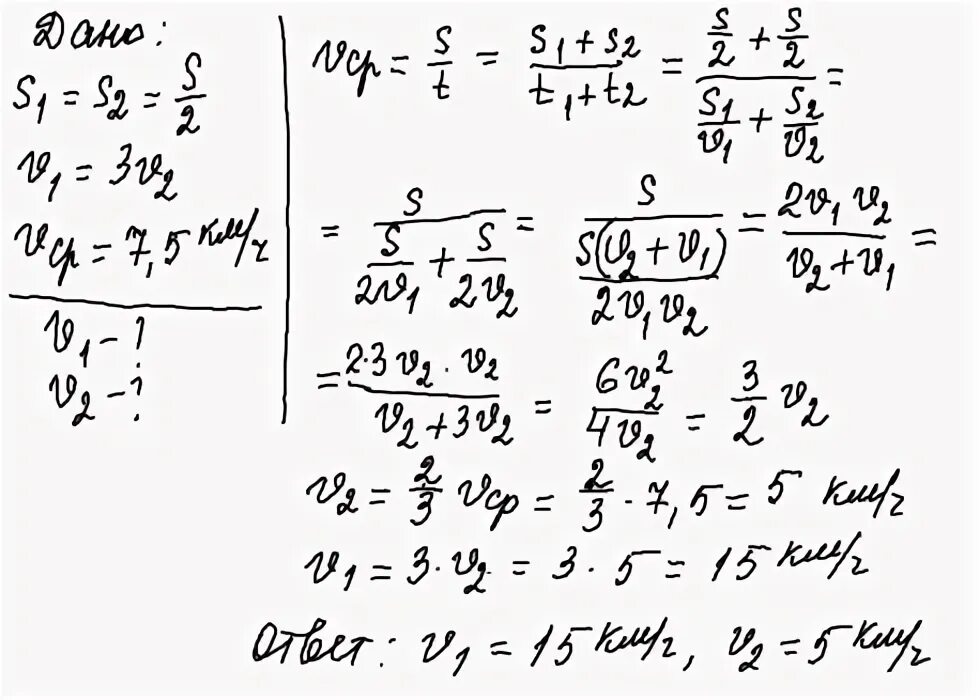 Дано:
S₁ = S₂ = S/2
v₁ = 3v₂
vср = 7,5 км/ч
v₁ - ?
v₂ - ?
vср = S/t = (S₁ + S₂)/(t₁ + t₂) = (S/2 + S/2)/(S₁/v₁ + S₂/v₂) =
= S/(S/2v₁ + S/2v₂) = S/(S(v₂ + v₁)/2v₁v₂) = 2v₁v₂/(v₂ + v₁) =
= 2·3v₂·v₂/(v₂ + 3v₂) = 6v₂²/4v₂ = 3/2 v₂
v₂ = 2/3 vср = 2/3 · 7,5 = 5 км/ч
v₁ = 3·v₂ = 3 · 5 = 15 км/ч
Ответ: v₁ = 15 км/ч, v₂ = 5 км/ч